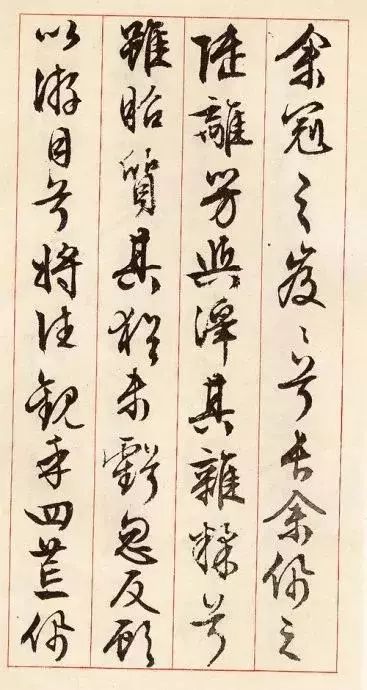 余冠之岌々兮長余佩之
陸離芳與澤其雜糅兮
雖昭質其猶未虧忽反顧
以游目兮將往觀乎四荒佩